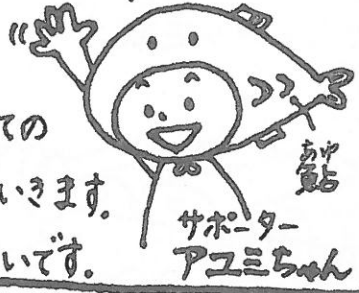 ての
いきます。
いです。
あゆ
鮎
サポーター
アユミちゃん